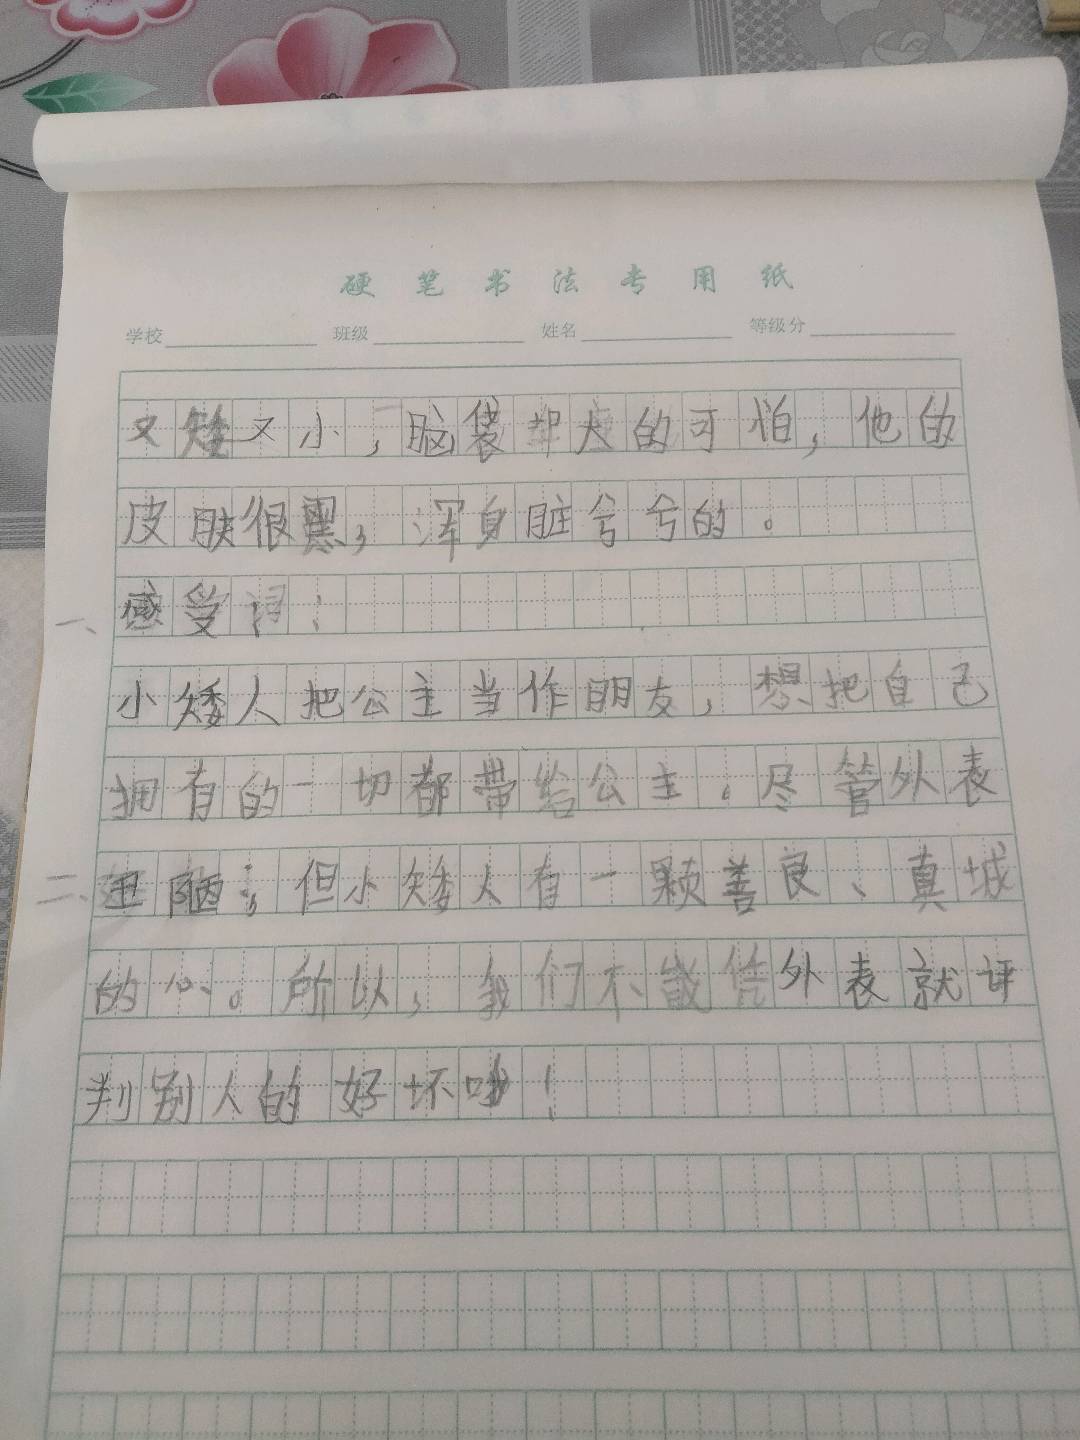 硬笔书法专用纸
学校 班级 姓名 等级分
又矮又小，脑袋却大的可怕，他的
皮肤很黑，浑身脏兮兮的。
一、感受词：
小矮人把公主当作朋友，想把自己
拥有的一切都带给公主。尽管外表
二、丑陋；但小矮人有一颗善良、真城
的心。所以，我们不能凭外表就评
判别人的好坏哦！